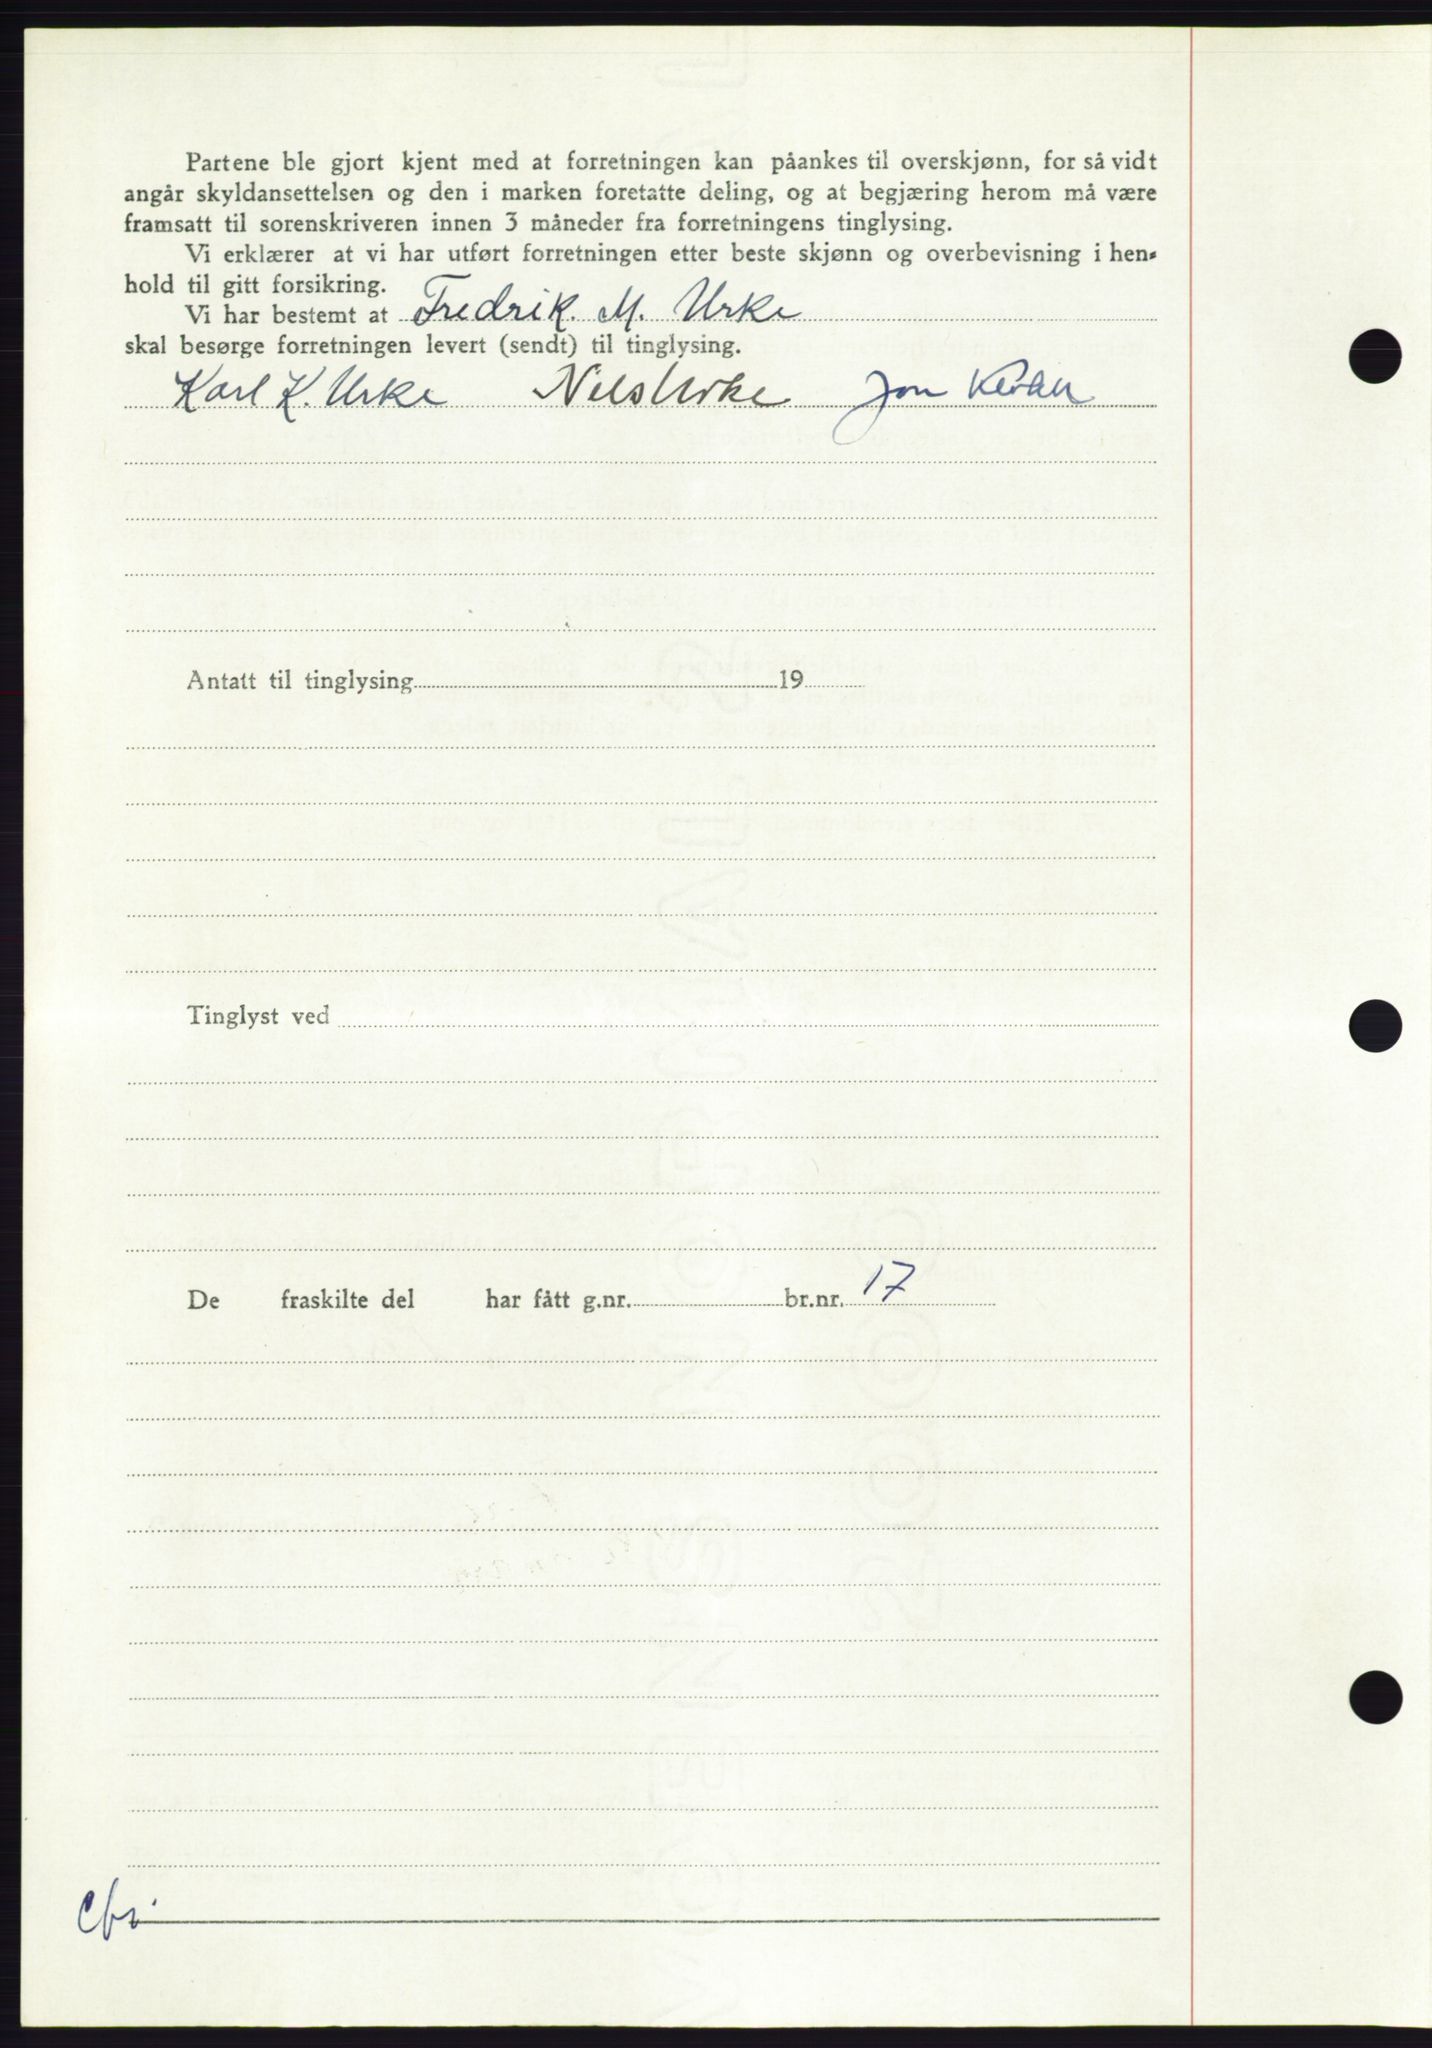 Partene ble gjort kjent med at forretningen kan påankes til overskjønn, for så vidt
angår skyldansettelsen og den i marken foretatte deling, og at begjæring herom må være
framsatt til sorenskriveren innen 3 måneder fra forretningens tinglysing.
Vi erklærer at vi har utført forretningen etter beste skjønn og overbevisning i hen-
hold til gitt forsikring.
Vi har bestemt at Fredrik. M. Urke
skal besørge forretningen levert (sendt) til tinglysing.
Karl K. Urke Nils Urke Jon
Antatt til tinglysing 19
Tinglyst ved
De fraskilte del har fått g.nr. br.nr. 17